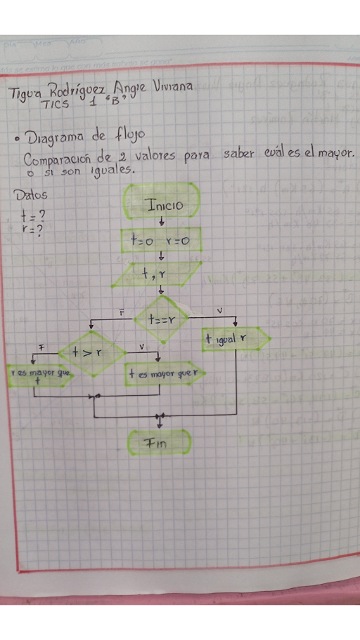 Tigua Rodríguez Angie Viviana
TICS 1 "B"
• Diagrama de flujo
Comparación de 2 valores para saber cuál es el mayor.
o si son iguales.
Datos
t=?
r=?
Inicio
t=0 r=0
t, r
t==r
F
V
t igual r
t>r
F
V
r es mayor que
t
t es mayor que r
Fin